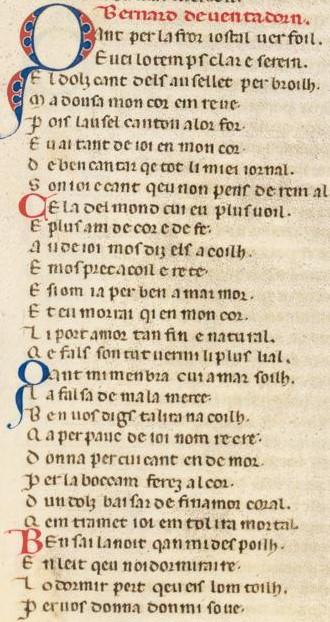 Bernard de uentadorn.
Qant per la fror iostal uer foil.
E uei lo temps clar e serem.
E l dolz cant dels ausellet per broilh.
M adousa mon cor em reue.
P ois lausel canton a lor for.
E u ai tant de ioi en mon cor.
D e ben cantar qe tot li miei iornal.
S on ioi e cant qeu non pens de ren al
CE la del mond cui eu plus uoil.
E plus am de cor e de fe.
A u de ioi mos diz els acoilh.
E mos precs acoil e rete.
E si om ia per ben amar mor.
E t eu morrai qi en mon cor.
L i port amor tan fin e natural.
Q e fals son tut uermi li plus lial.
Qant mi menbra cui amar soilh.
L a falsa de mala merce.
B en uos digs tal ira na coilh.
Q a per pauc de ioi nom recre.
D onna per cui cant en demor.
P er la boccam ferez al cor.
D un dolz baisar de finamor coral.
Q em tramet ioi em tol ira mortal.
BEn sai la noit qan mi despoilh.
E n leit qeu noi dormirai re.
L o dormir pert qeu eis lom toilh.
P er uos donna don mi soue.